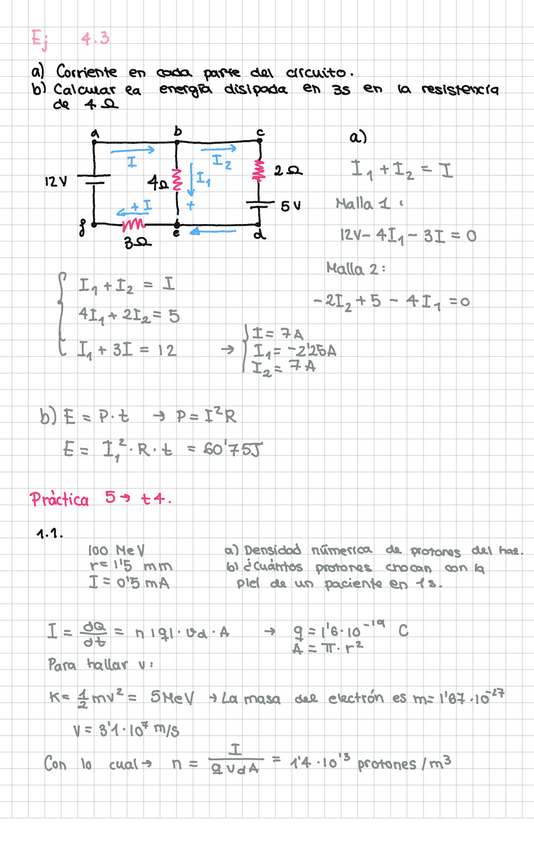 Ej 4.3
a) Corriente en cada parte del circuito.
b) Calcular ea energía disipada en 3s en la resistencia
de 4Ω
a b c
I I2
12V 4Ω I1 2Ω
+ I + 5V
f e d
3Ω
a)
I1 + I2 = I
Malla 1:
12V - 4I1 - 3I = 0
Malla 2:
-2I2 + 5 - 4I1 = 0
I1 + I2 = I
4I1 + 2I2 = 5
I1 + 3I = 12 → I = 7A
I1 = -2'25A
I2 = 7A
b) E = P · t → P = I²R
E = I1² · R · t = 60'75J
Práctica 5 → t4.
1.1.
100 MeV
r = 1'5 mm
I = 0'5 mA
a) Densidad númerica de protones del haz.
b) ¿Cuántos protones chocan con la
piel de un paciente en 1s.
I = dQ/dt = n|q| · vd · A → q = 1'6 · 10⁻¹⁹ C
A = π · r²
Para hallar v:
K = 1/2 mv² = 5MeV → La masa del electrón es m = 1'67 · 10⁻²⁷
V = 3'1 · 10⁷ m/s
Con lo cual → n = I / q vd A = 1'4 · 10¹³ protones / m³